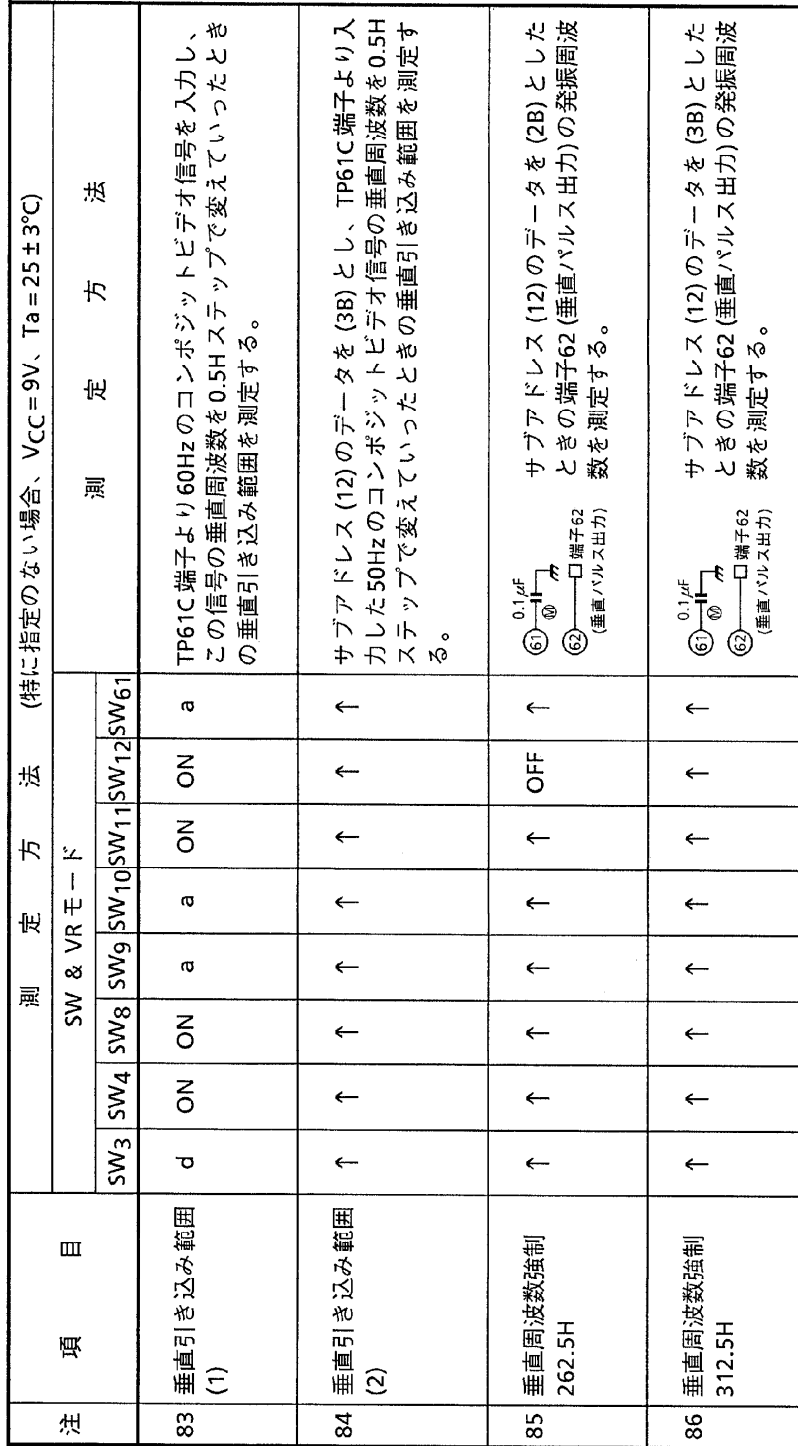 注
項　目
測　定　方　法　(特に指定のない場合、VCC = 9V、Ta = 25 ± 3°C)
SW & VRモード
測　定　方　法
SW3 SW4 SW8 SW9 SW10 SW11 SW12 SW61
83
垂直引き込み範囲
(1)
d ON ON a a ON ON a
TP61C 端子より 60Hz のコンポジットビデオ信号を入力し、
この信号の垂直周波数を 0.5H ステップで変えていったとき
の垂直引き込み範囲を測定する。
84
垂直引き込み範囲
(2)
↑ ↑ ↑ ↑ ↑ ↑ ↑ ↑
サブアドレス (12) のデータを (3B) とし、TP61C 端子より入
力した 50Hz のコンポジットビデオ信号の垂直周波数を 0.5H
ステップで変えていったときの垂直引き込み範囲を測定す
る。
85
垂直周波数強制
262.5H
↑ ↑ ↑ ↑ ↑ ↑ OFF ↑
61 0.1μF Ⓜ
62 端子62
(垂直パルス出力)
サブアドレス (12) のデータを (2B) とした
ときの端子62 (垂直パルス出力) の発振周波
数を測定する。
86
垂直周波数強制
312.5H
↑ ↑ ↑ ↑ ↑ ↑ ↑ ↑
61 0.1μF Ⓜ
62 端子62
(垂直パルス出力)
サブアドレス (12) のデータを (3B) とした
ときの端子62 (垂直パルス出力) の発振周波
数を測定する。